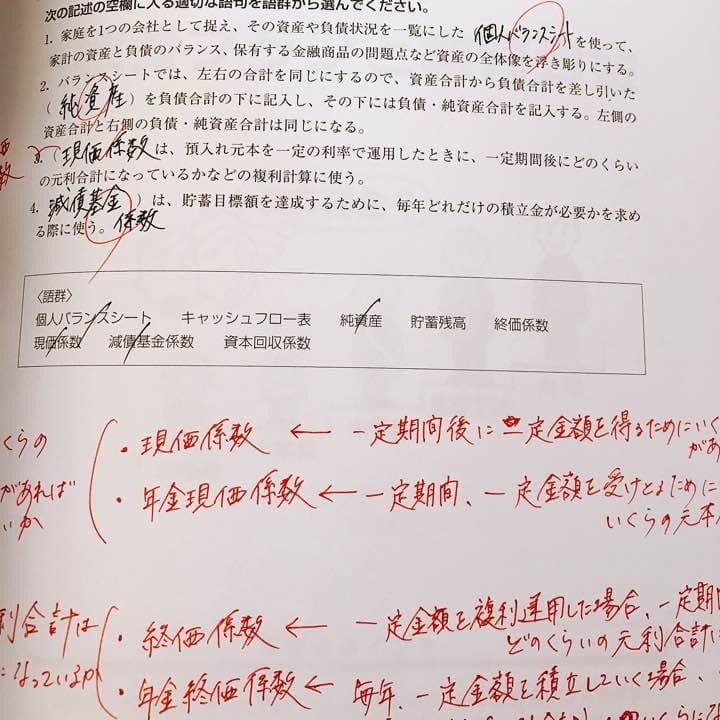 次の記述の空欄に入る適切な語句を語群から選んでください。
1. 家庭を1つの会社として捉え、その資産や負債状況を一覧にした 個人バランスシート を使って、
家計の資産と負債のバランス、保有する金融商品の問題点など資産の全体像を浮き彫りにする。
2. バランスシートでは、左右の合計を同じにするので、資産合計から負債合計を差し引いた
(純資産)を負債合計の下に記入し、その下には負債・純資産合計を記入する。左側の
資産合計と右側の負債・純資産合計は同じになる。
3. (現価係数 は、預入れ元本を一定の利率で運用したときに、一定期間後にどのくらい
の元利合計になっているかなどの複利計算に使う。
4. 減債基金 )は、貯蓄目標額を達成するために、毎年どれだけの積立金が必要かを求め
る際に使う。 係数
〈語群〉
個人バランスシート キャッシュフロー表 純資産 貯蓄残高 終価係数
現価係数 減債基金係数 資本回収係数
くらの
があれば
いか
・現価係数 ← 一定期間後に 一定金額を得るためにいく
があ
・年金現価係数 ← 一定期間、一定金額を受けとるために
いくらの元本
利合計は
になっているか
・終価係数 ← 一定金額を複利運用した場合、一定期
どのくらいの元利合計に
・年金終価係数 ← 毎年、一定金額を積立していく場合、